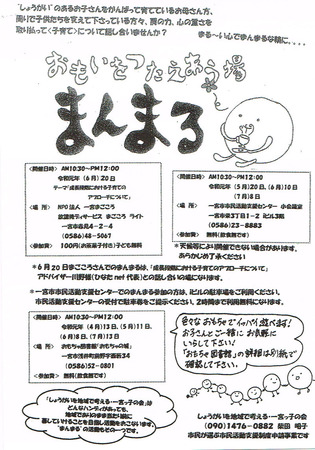 "しょうがい"のあるお子さんをがんばって育てているお母さん方、
周りで子供たちを支えて下さっている方々、肩の力、心の重さを
取り払って<子育て>について話し合いませんか？
まる～い心でまんまるな輪に．．．．
おもいをつたえあう場
まんまる
<開催日時> AM10:30～PM12:00
令和元年（6月）20日
テーマ「成長段階における子育ての
アプローチについて」
<場 所> NPO法人 一宮まごころ
放課後デイサービス まごころ ライト
一宮市森本4-2-4
(0586-48-5067)
<参加費> 100円(お菓子付き)子ども無料
<開催日時> AM10:30～PM12:00
令和元年（5月）20日、（6月）10日
（7月）8日
<場所> 一宮市市民活動支援センター 小会議室
一宮市栄3丁目1-2 iビル3階
(0586-23-8883)
<参加費> 無料(飲食暖です)
*天候等により開催できない場合があります。
あらかじめ了承ください
*6月20日まごころさんでのまんまるは、「成長段階における子育てのアプローチについて」
アドバイザー川野様(ひなたnet代表)との話し合いの場になります。
*一宮市市民活動支援センターでのまんまる参加の方は、iビルの駐車場をご利用ください。
市民活動支援センターの受付で駐車券をご提示ください。2時間まで利用無料になります。
<開催日時> AM10:30～PM12:00
令和元年（4月)13日、（5月）11日、
（6月)8日、（7月）13日
<場所> おもちゃ図書館「おもちゃの城」
一宮市浅井町
(0586-52-0801)
<参加費> 無料(飲食暖です)
色々なおもちゃでイッパイ遊べます！
お子さんとご一緒に お気軽に
いらして下さい！
「おもちゃ図書館」の詳細は別紙で
確認して下さい。
「しょうがいを地域で考える・一宮っ子の会」は
どんなハンディがあっても、
地域でありのまま当たり前に
暮していけることを目指し活動をおこないます。
"まんまる"の活動もその一つです。
しょうがいを地域で考える・一宮っ子の会
(090)1476-0882 柴田 明子
市民が選ぶ市民活動支援制度申請事業です